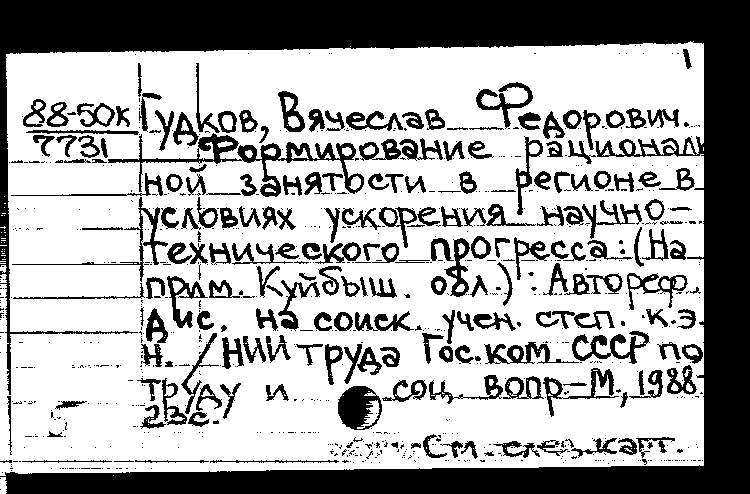 1
88-50к Гудков, Вячеслав Федорович.
7731 Формирование рациональ
ной занятости в регионе в
условиях ускорения научно-
технического прогресса: (На
прим. Куйбыш. обл.): Автореф.
дис. на соиск. учен. степ. к.э.
н. /НИИ труда Гос.ком. СССР по
труду и соц. вопр.-М., 1988-
23с.
См. след. карт.